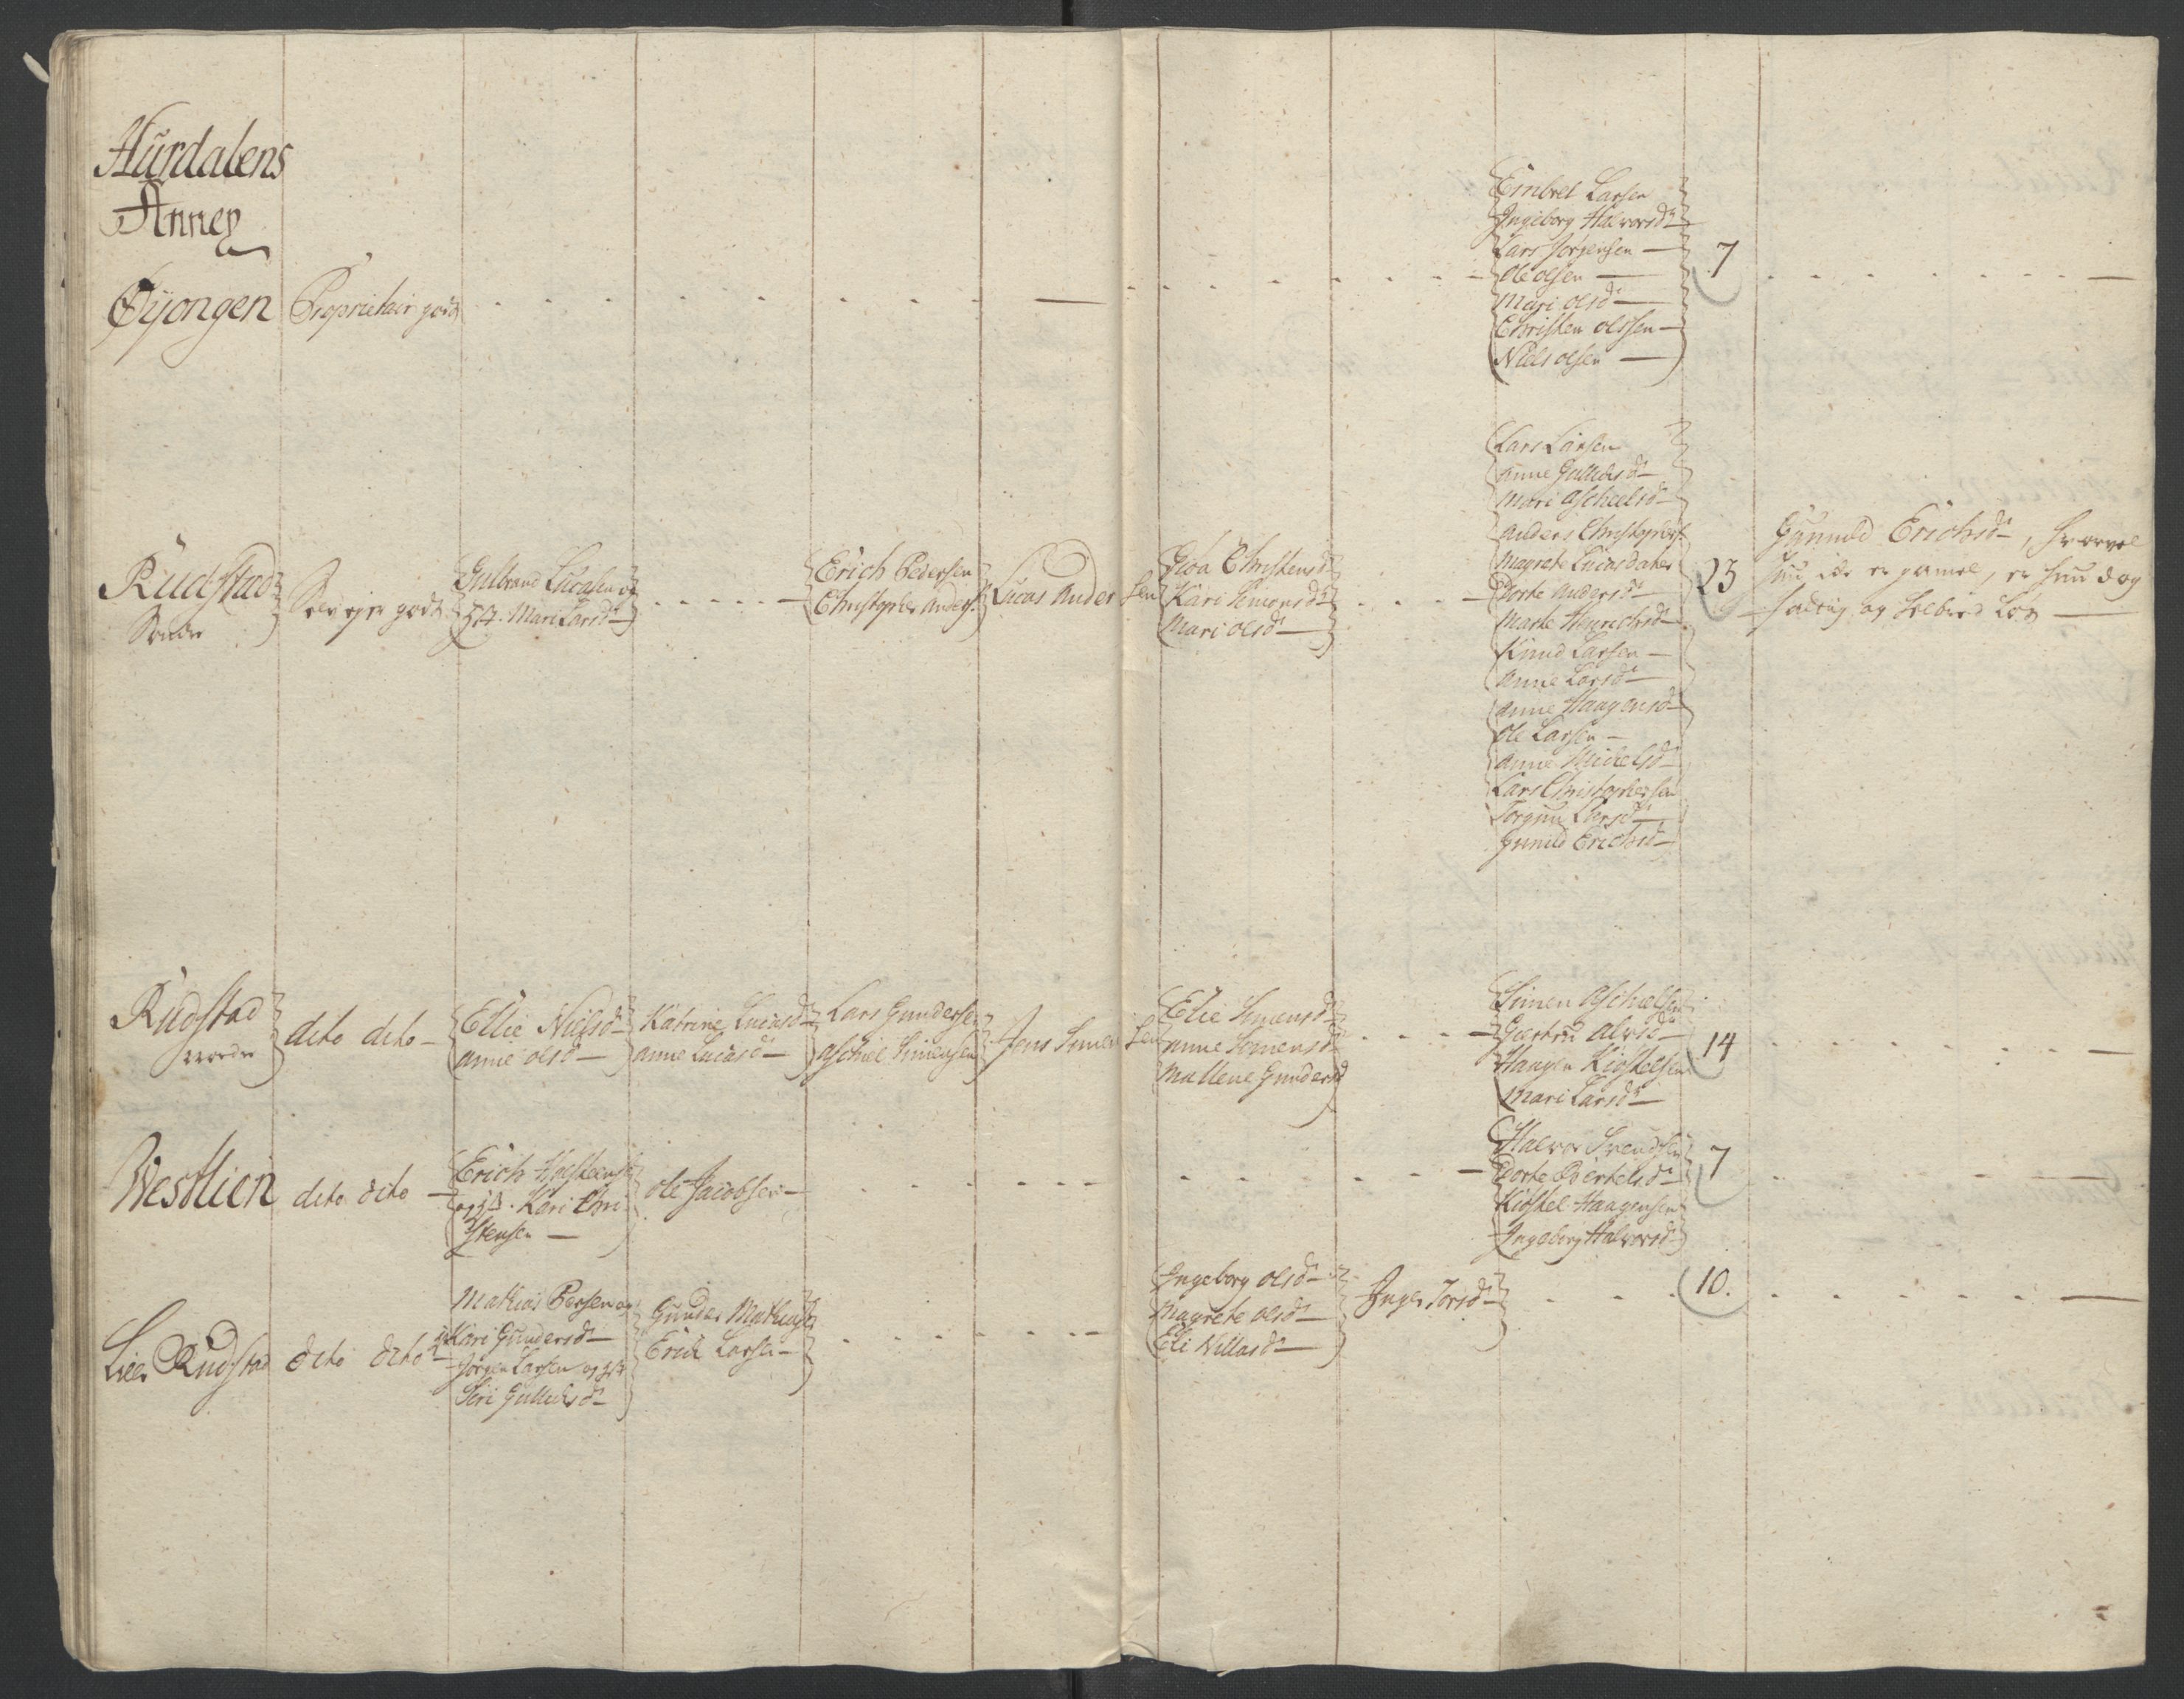 Hurdalens
Annex
Øyongen
Proprietair gods
Embret Larsen
Ingeborg Halvorsd
Lars Jörgensen
Ole olsen
Mari olsd
Christen olssen
Niels olsen
7
Rudstad
Söndre
Selv ejer gods
Gulbrand Lucasen og
Mari Larsd
Erich Pedersen
Christopher Anders
Lucas Andersen
Christensd
Kari Simonsd
Mari olsd
Lars Larsen
Anne Gullichsd
Mari Aschelsd
Anders Christophers
Magrete Lucasdater
Dorte Andersd
Marte Henrichsd
Knud Larsen
Anne Larsd
Anne Haagensd
Ole Larsen
Anne Michelsd
Lars Christophersen
Torgun Larsd
Gunild Erichsd
23
Gunnild Erichsd, hvorvel
hun ike er gamel, er hun dog
fattig og
Rudstad
nordre
dito dito
Ellie Nielsd
Anne olsd
Katrine Lucasd
Anne Lucasd
Lars Gundersen
Aschiel Simensen
Jens Simensen
Elie Simensd
Anne Simensd
Mallene Gundersd
Simen Aschelsen
Giertru Alvsd
Haagen Kiostelsen
Mari Larsd
14
Westlien
dito dito
Erich
og Kari Chri
stensen
ole Jacobsen
Halvor Svendsen
Dorte Bertelsd
Kiostel Haagensen
Ingeborg Halvorsd
7
Lille Rudstad
dito dito
Mathias Persen og
Kari Gundersd
Jörgen Larsen og
Siri Gullichsd
Gunder Mathiass
Erich Larsen
Ingeborg olsd
Magrete olsd
Eli Nillasd
Inger Torsd
10.